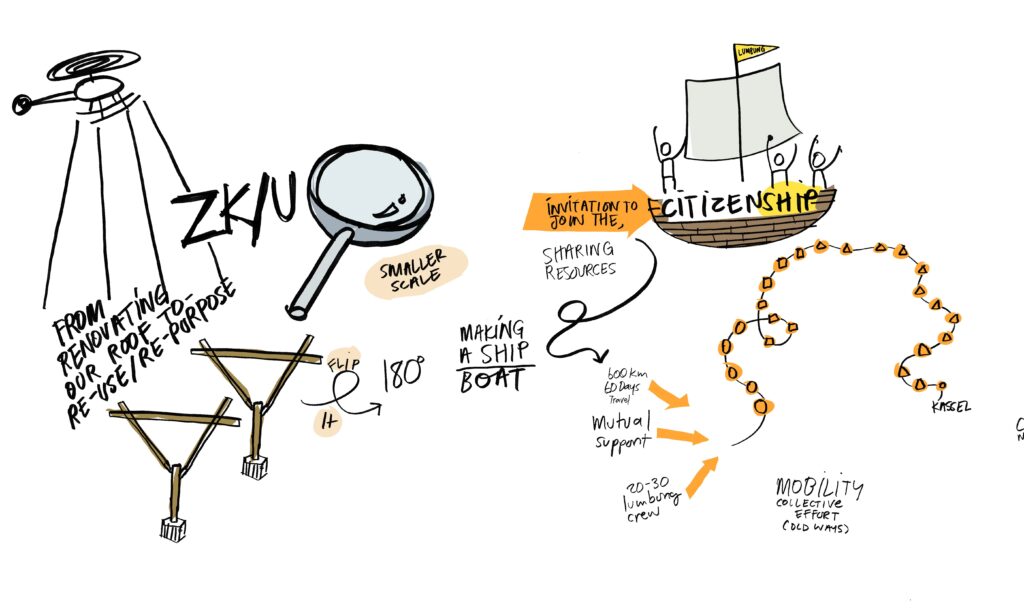 ZK/U
SMALLER
SCALE
FROM
RENOVATING
OUR ROOF TO-
RE-USE/RE-PURPOSE
FLIP
It
180°
LUMBUNG
CITIZENSHIP
INVITATION TO
JOIN THE,
SHARING
RESOURCES
MAKING
A SHIP
BOAT
600 km
60 Days
Travel
Mutual
support
20-30
lumbung
crew
KASSEL
MOBILITY
COLLECTIVE
EFFORT
(OLD WAYS)